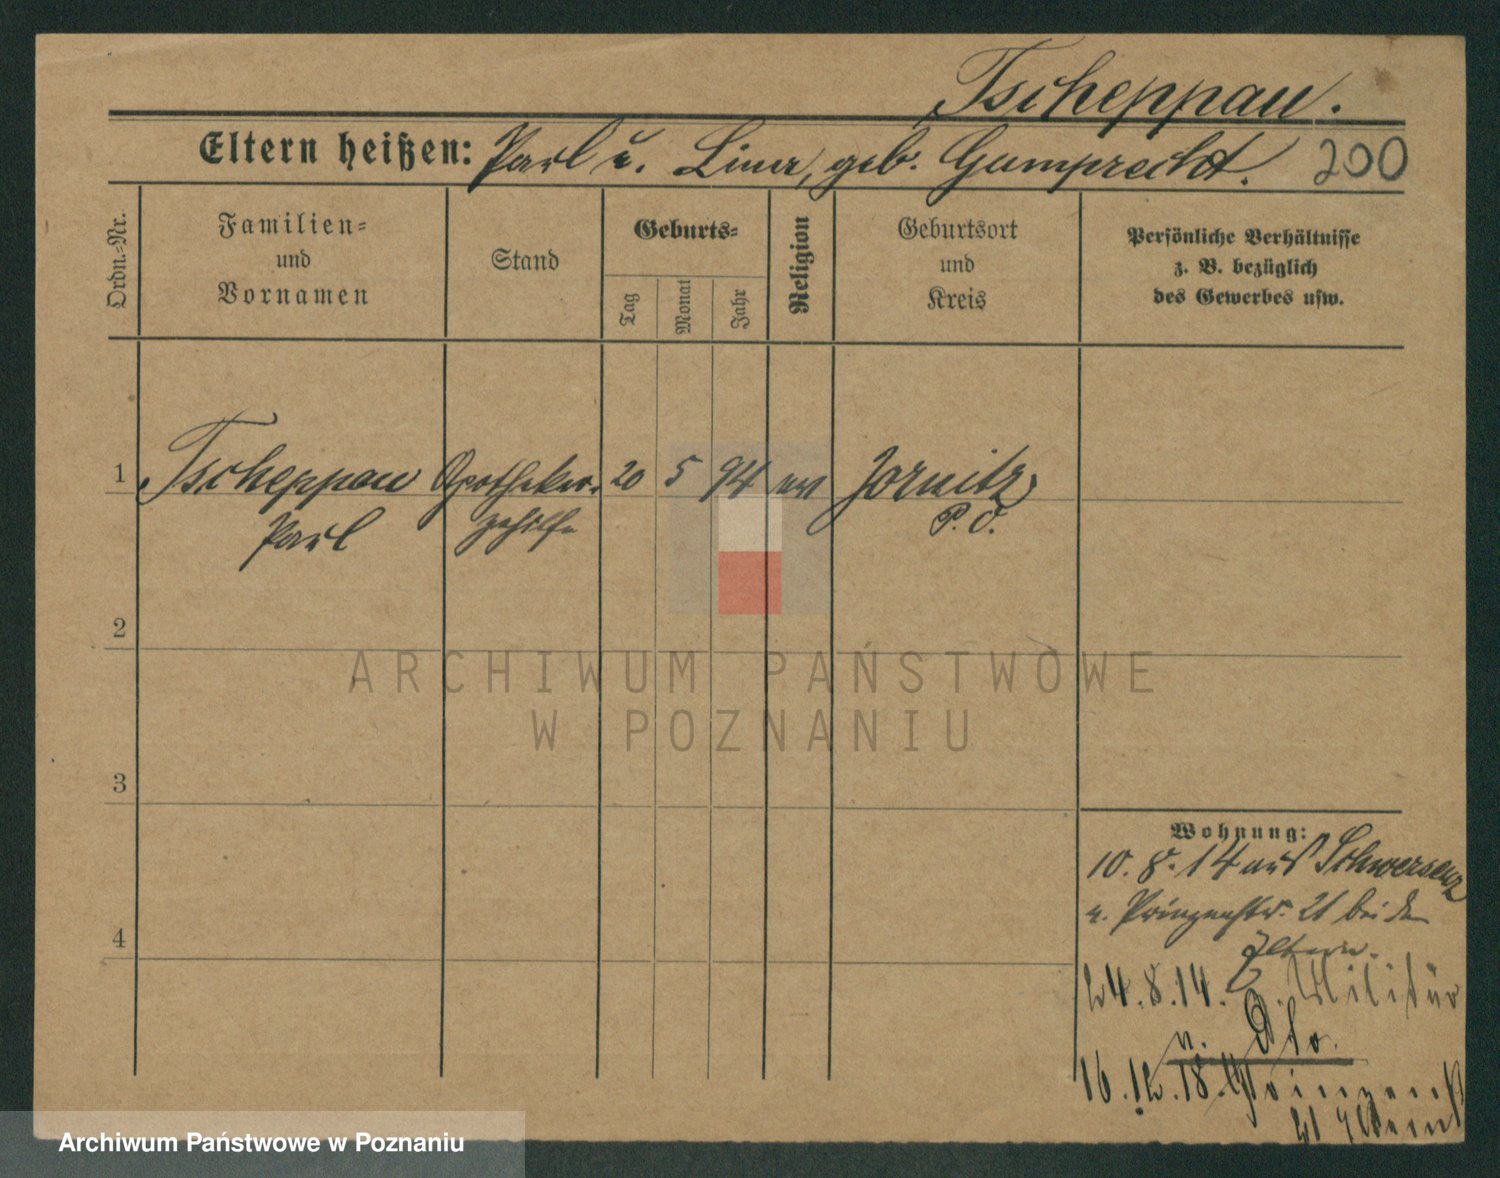 Tscheppau.
Eltern heißen: Paul u. Lina, geb. Gumprecht.
200
Ordn.-Nr.
Familien-
und
Vornamen
Stand
Geburts-
Tag
Monat
Jahr
Religion
Geburtsort
und
Kreis
Persönliche Verhältnisse
z. B. bezüglich
des Gewerbes usw.
1 Tscheppau Apotheker- 20 5 94 ev Jornitz
Paul gehilfe P. O.
2
ARCHIWUM PAŃSTWOWE
W POZNANIU
3
Wohnung:
10. 8. 14 aus Schwersenz
n. Prinzenstr. 21 bei den
Eltern.
4
24. 8. 14. z. Militär
n.
16. 12. 18. Prinzenst
21 Eltern
Archiwum Państwowe w Poznaniu